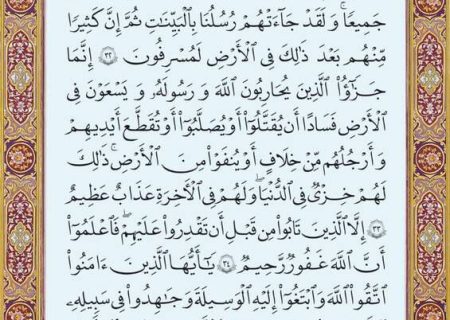 جَمِيعًا ۚ وَلَقَدْ جَآءَتْهُمْ رُسُلُنَا بِالْبَيِّنَٰتِ ثُمَّ إِنَّ كَثِيرًا
مِّنْهُم بَعْدَ ذَٰلِكَ فِي الْأَرْضِ لَمُسْرِفُونَ ﴿٣٢﴾ إِنَّمَا
جَزَٰٓؤُا۟ الَّذِينَ يُحَارِبُونَ اللَّهَ وَرَسُولَهُۥ وَيَسْعَوْنَ فِي
الْأَرْضِ فَسَادًا أَن يُقَتَّلُوٓا۟ أَوْ يُصَلَّبُوٓا۟ أَوْ تُقَطَّعَ أَيْدِيهِمْ
وَأَرْجُلُهُم مِّنْ خِلَافٍ أَوْ يُنفَوْا۟ مِنَ الْأَرْضِ ۚ ذَٰلِكَ
لَهُمْ خِزْيٌ فِي الدُّنْيَا ۖ وَلَهُمْ فِي الْآخِرَةِ عَذَابٌ عَظِيمٌ
﴿٣٣﴾ إِلَّا الَّذِينَ تَابُوا۟ مِن قَبْلِ أَن تَقْدِرُوا۟ عَلَيْهِمْ ۖ فَاعْلَمُوٓا۟
أَنَّ اللَّهَ غَفُورٌ رَّحِيمٌ ﴿٣٤﴾ يَٰٓأَيُّهَا الَّذِينَ ءَامَنُوا۟
اتَّقُوا۟ اللَّهَ وَابْتَغُوٓا۟ إِلَيْهِ الْوَسِيلَةَ وَجَٰهِدُوا۟ فِي سَبِيلِهِۦ